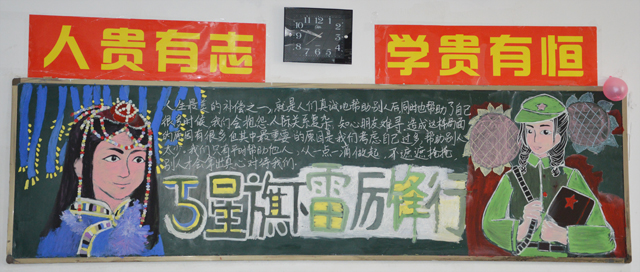 人贵有志
学贵有恒
人生最美的补偿之一，就是人们真诚地帮助别人后同时也帮助了自己
很多时候我们会抱怨人际关系复杂，知心朋友难寻，造成这样局面
的原因有很多但其中最重要的原因是我们考虑自己过多，帮助别人
人们，我们只有平时帮助他人，从一点一滴做起，不
别人才会拿出真心对待我们。
五星旗下雷厉锋行